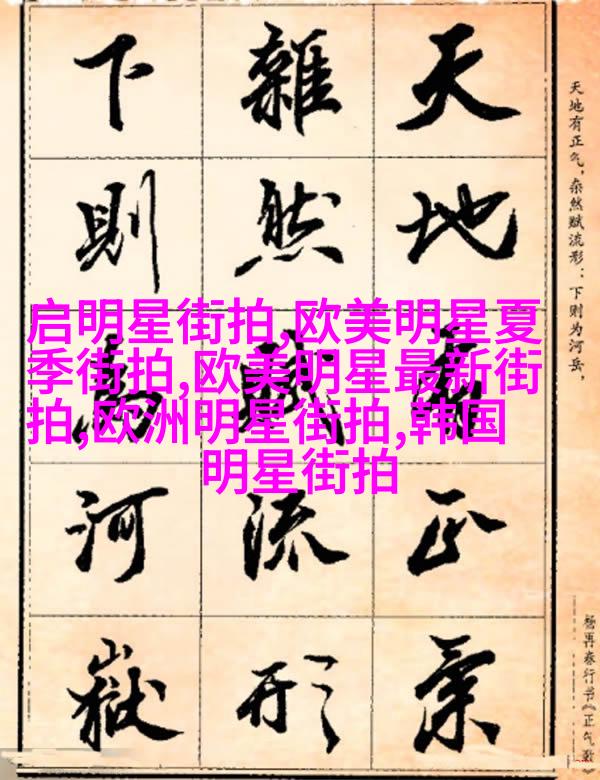 天地有正氣
雜然賦流形
下則為河嶽
天地有正气，杂然赋流形：下则为河岳，
杨再春行书《正气歌》
启明星街拍,欧美明星夏
季街拍,欧美明星最新街
拍,欧洲明星街拍,韩国
明星街拍